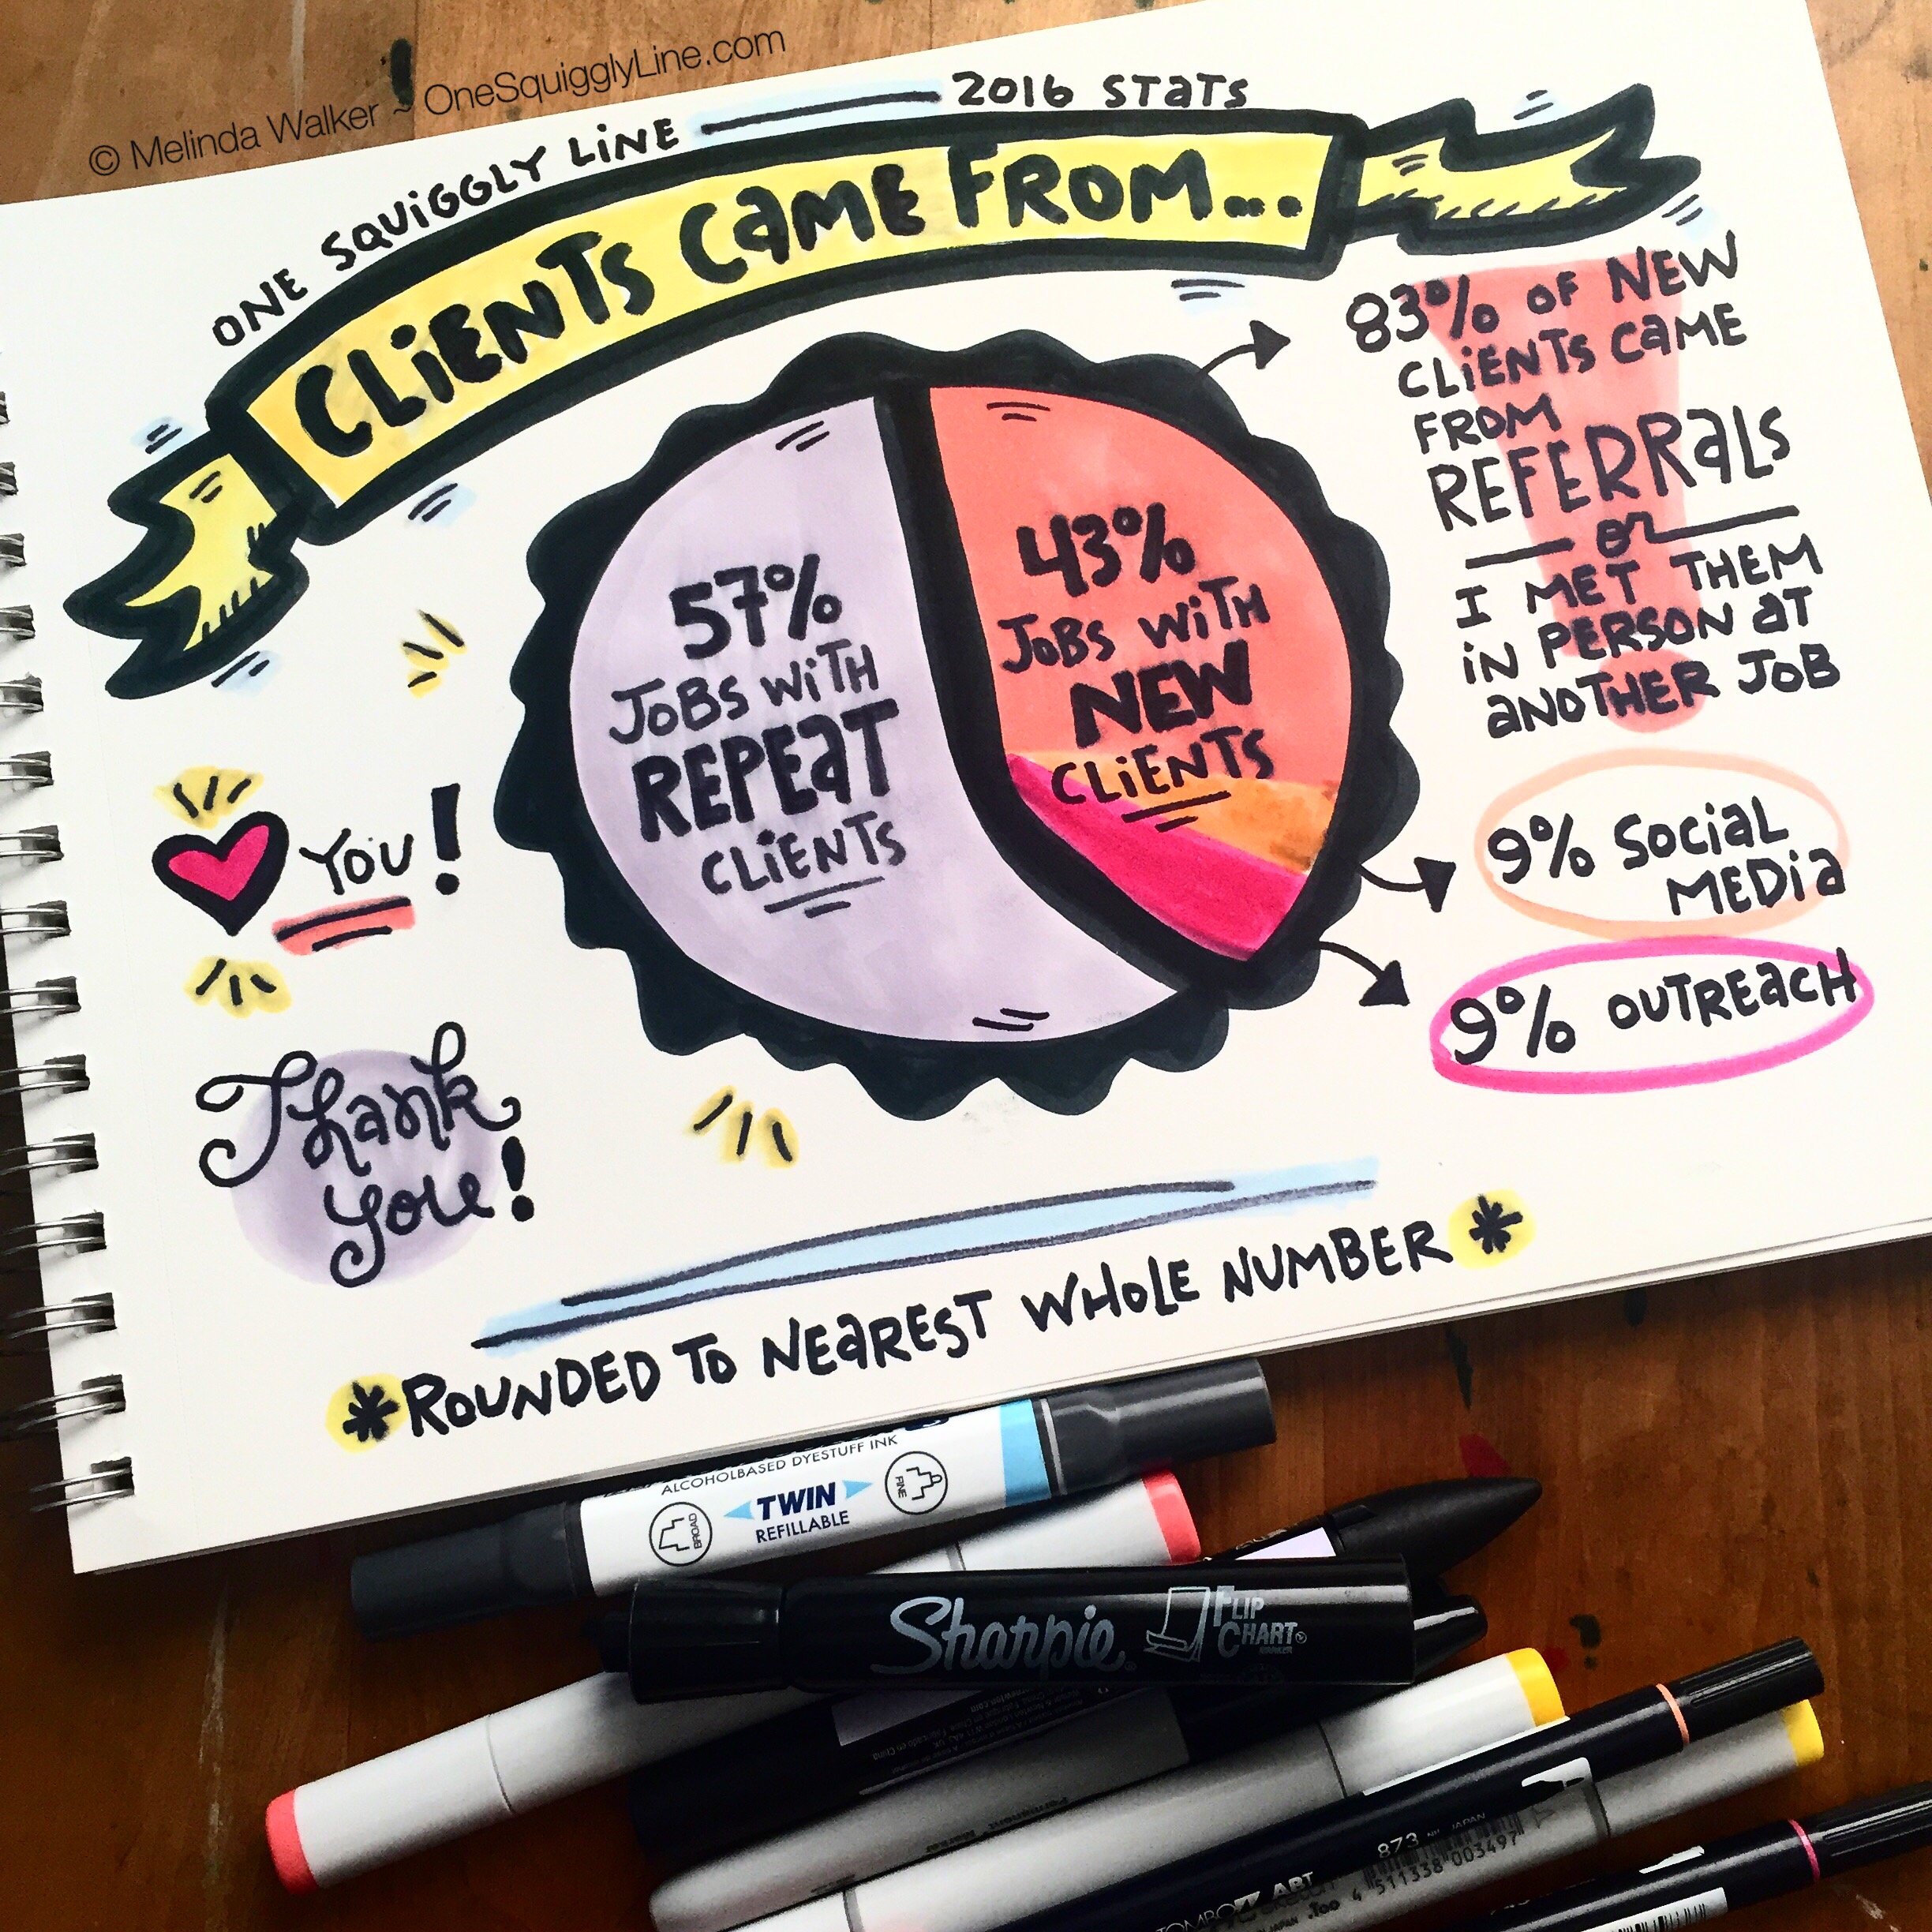 © Melinda Walker ~ OneSquigglyLine.com
ONE SQUiGGLY LiNE
2016 STaTS
CLiENTS CaME FROM...
57%
JOBS WiTH
REPEaT
CLiENTS
43%
JOBS WiTH
NEW
CLiENTS
83% OF NEW
CLiENTS CaME
FROM
REFERRaLS
OR
I MET THEM
iN PERSON aT
aNOTHER JOB
9% SOCiaL
MEDia
9% OUTREaCH
YOU!
Thank
you!
*ROUNDED TO NEaREST WHOLE NUMBER*
ALCOHOLBASED DYESTUFF INK
BROAD
TWIN
REFILLABLE
FINE
Sharpie
FLIP
CHART
MARKER
Permanent Marker
873
JAPAN
4 511338 003497
TOMBOW
ART